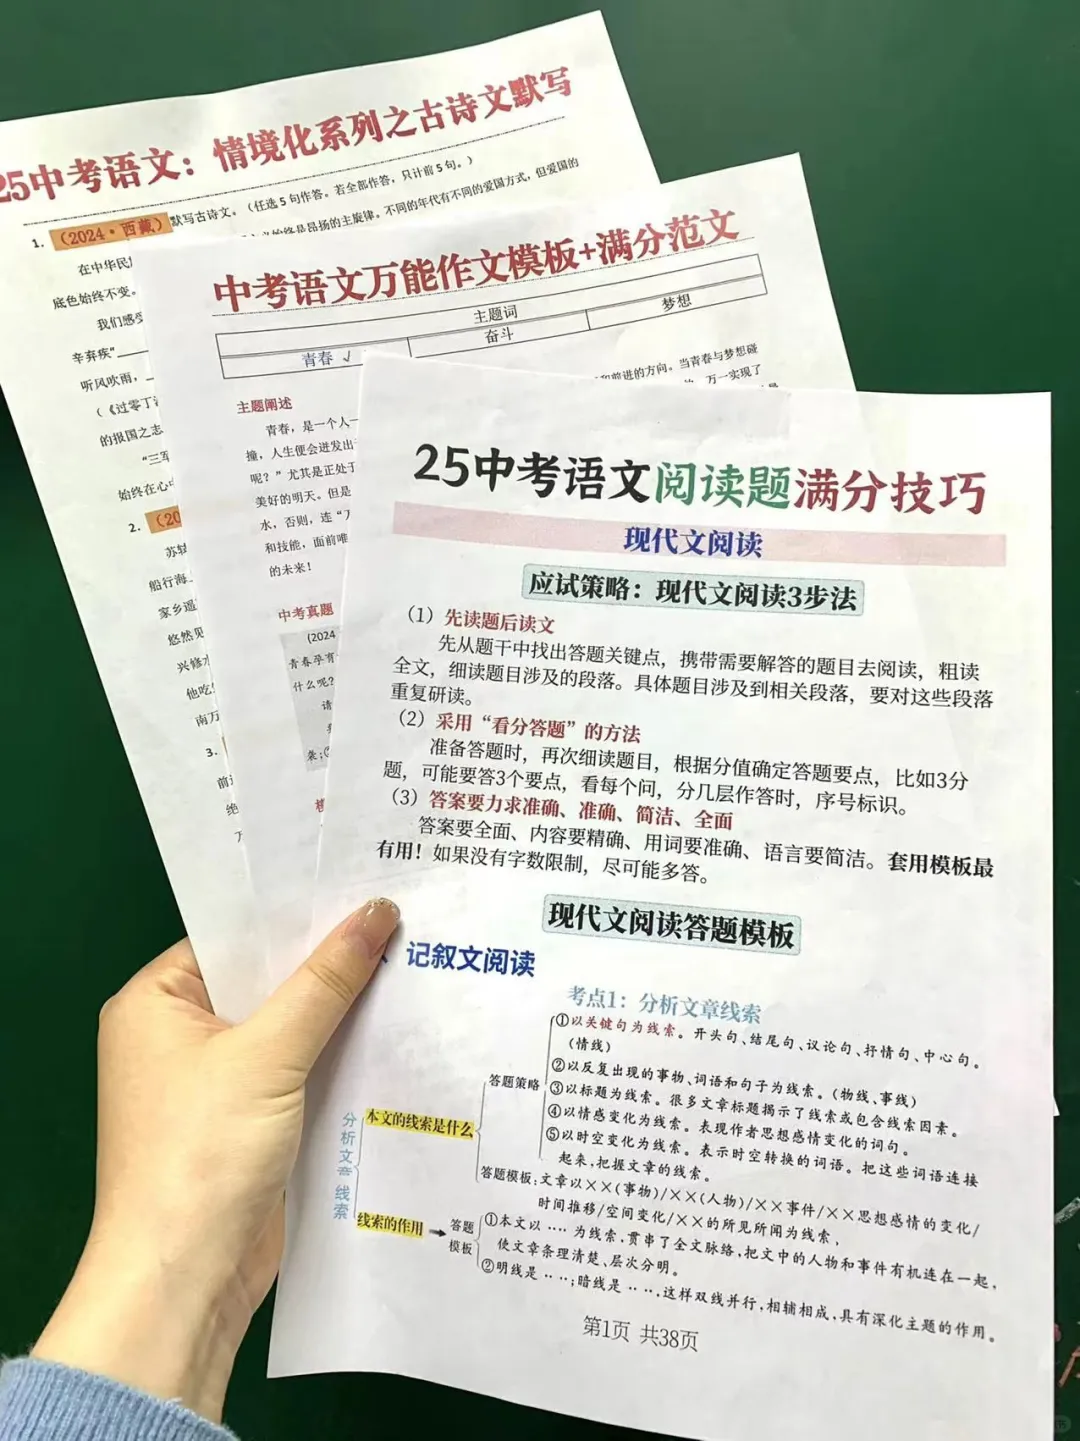 25中考语文：情境化系列之古诗文默写
1.（2024·西藏）默写古诗文。（任选5句作答。若全部作答，只计前5句。）
始终是昂扬的主旋律。不同的年代有不同的爱国方式，但爱国的
在中华民
底色始终不变。
我们感受
辛弃疾“
听风吹雨，
（《过零丁
的报国之志
“三军
始终在心
2.（20
苏轼
船行海
家乡遥
悠然见
兴修水
他吃
南万
3.
前
绝
中考语文万能作文模板+满分范文
主题词
青春 √
奋斗
梦想
主题阐述
和前进的方向。当青春与梦想碰
青春，是一个人一
万一实现了
撞，人生便会迸发出
呢？”尤其是正处于
美好的明天。但是
水，否则，连“
和技能，面前唯
的未来！
中考真题
(2024
青春孕育
什么呢？
请
25中考语文阅读题满分技巧
现代文阅读
应试策略：现代文阅读3步法
（1）先读题后读文
先从题干中找出答题关键点，携带需要解答的题目去阅读，粗读
全文，细读题目涉及的段落。具体题目涉及到相关段落，要对这些段落
重复研读。
（2）采用“看分答题”的方法
准备答题时，再次细读题目，根据分值确定答题要点，比如3分
题，可能要答3个要点，看每个问，分几层作答时，序号标识。
（3）答案要力求准确、准确、简洁、全面
答案要全面、内容要精确、用词要准确、语言要简洁。套用模板最
有用！如果没有字数限制，尽可能多答。
现代文阅读答题模板
、记叙文阅读
考点1：分析文章线索
分析文章线索
本文的线索是什么
答题策略
①以关键句为线索。开头句、结尾句、议论句、抒情句、中心句。
（情线）
②以反复出现的事物、词语和句子为线索。（物线、事线）
③以标题为线索。很多文章标题揭示了线索或包含线索因素。
④以情感变化为线索。表现作者思想感情变化的词句。
⑤以时空变化为线索。表示时空转换的词语。把这些词语连接
起来，把握文章的线索。
答题模板：文章以××(事物)/××(人物)/××事件/××思想感情的变化/
时间推移/空间变化/××的所见所闻为线索，
线索的作用
答题
模板
①本文以····为线索，贯串了全文脉络，把文中的人物和事件有机连在一起，
使文章条理清楚、层次分明。
②明线是····；暗线是····，这样双线并行，相辅相成，具有深化主题的作用。
第1页 共38页